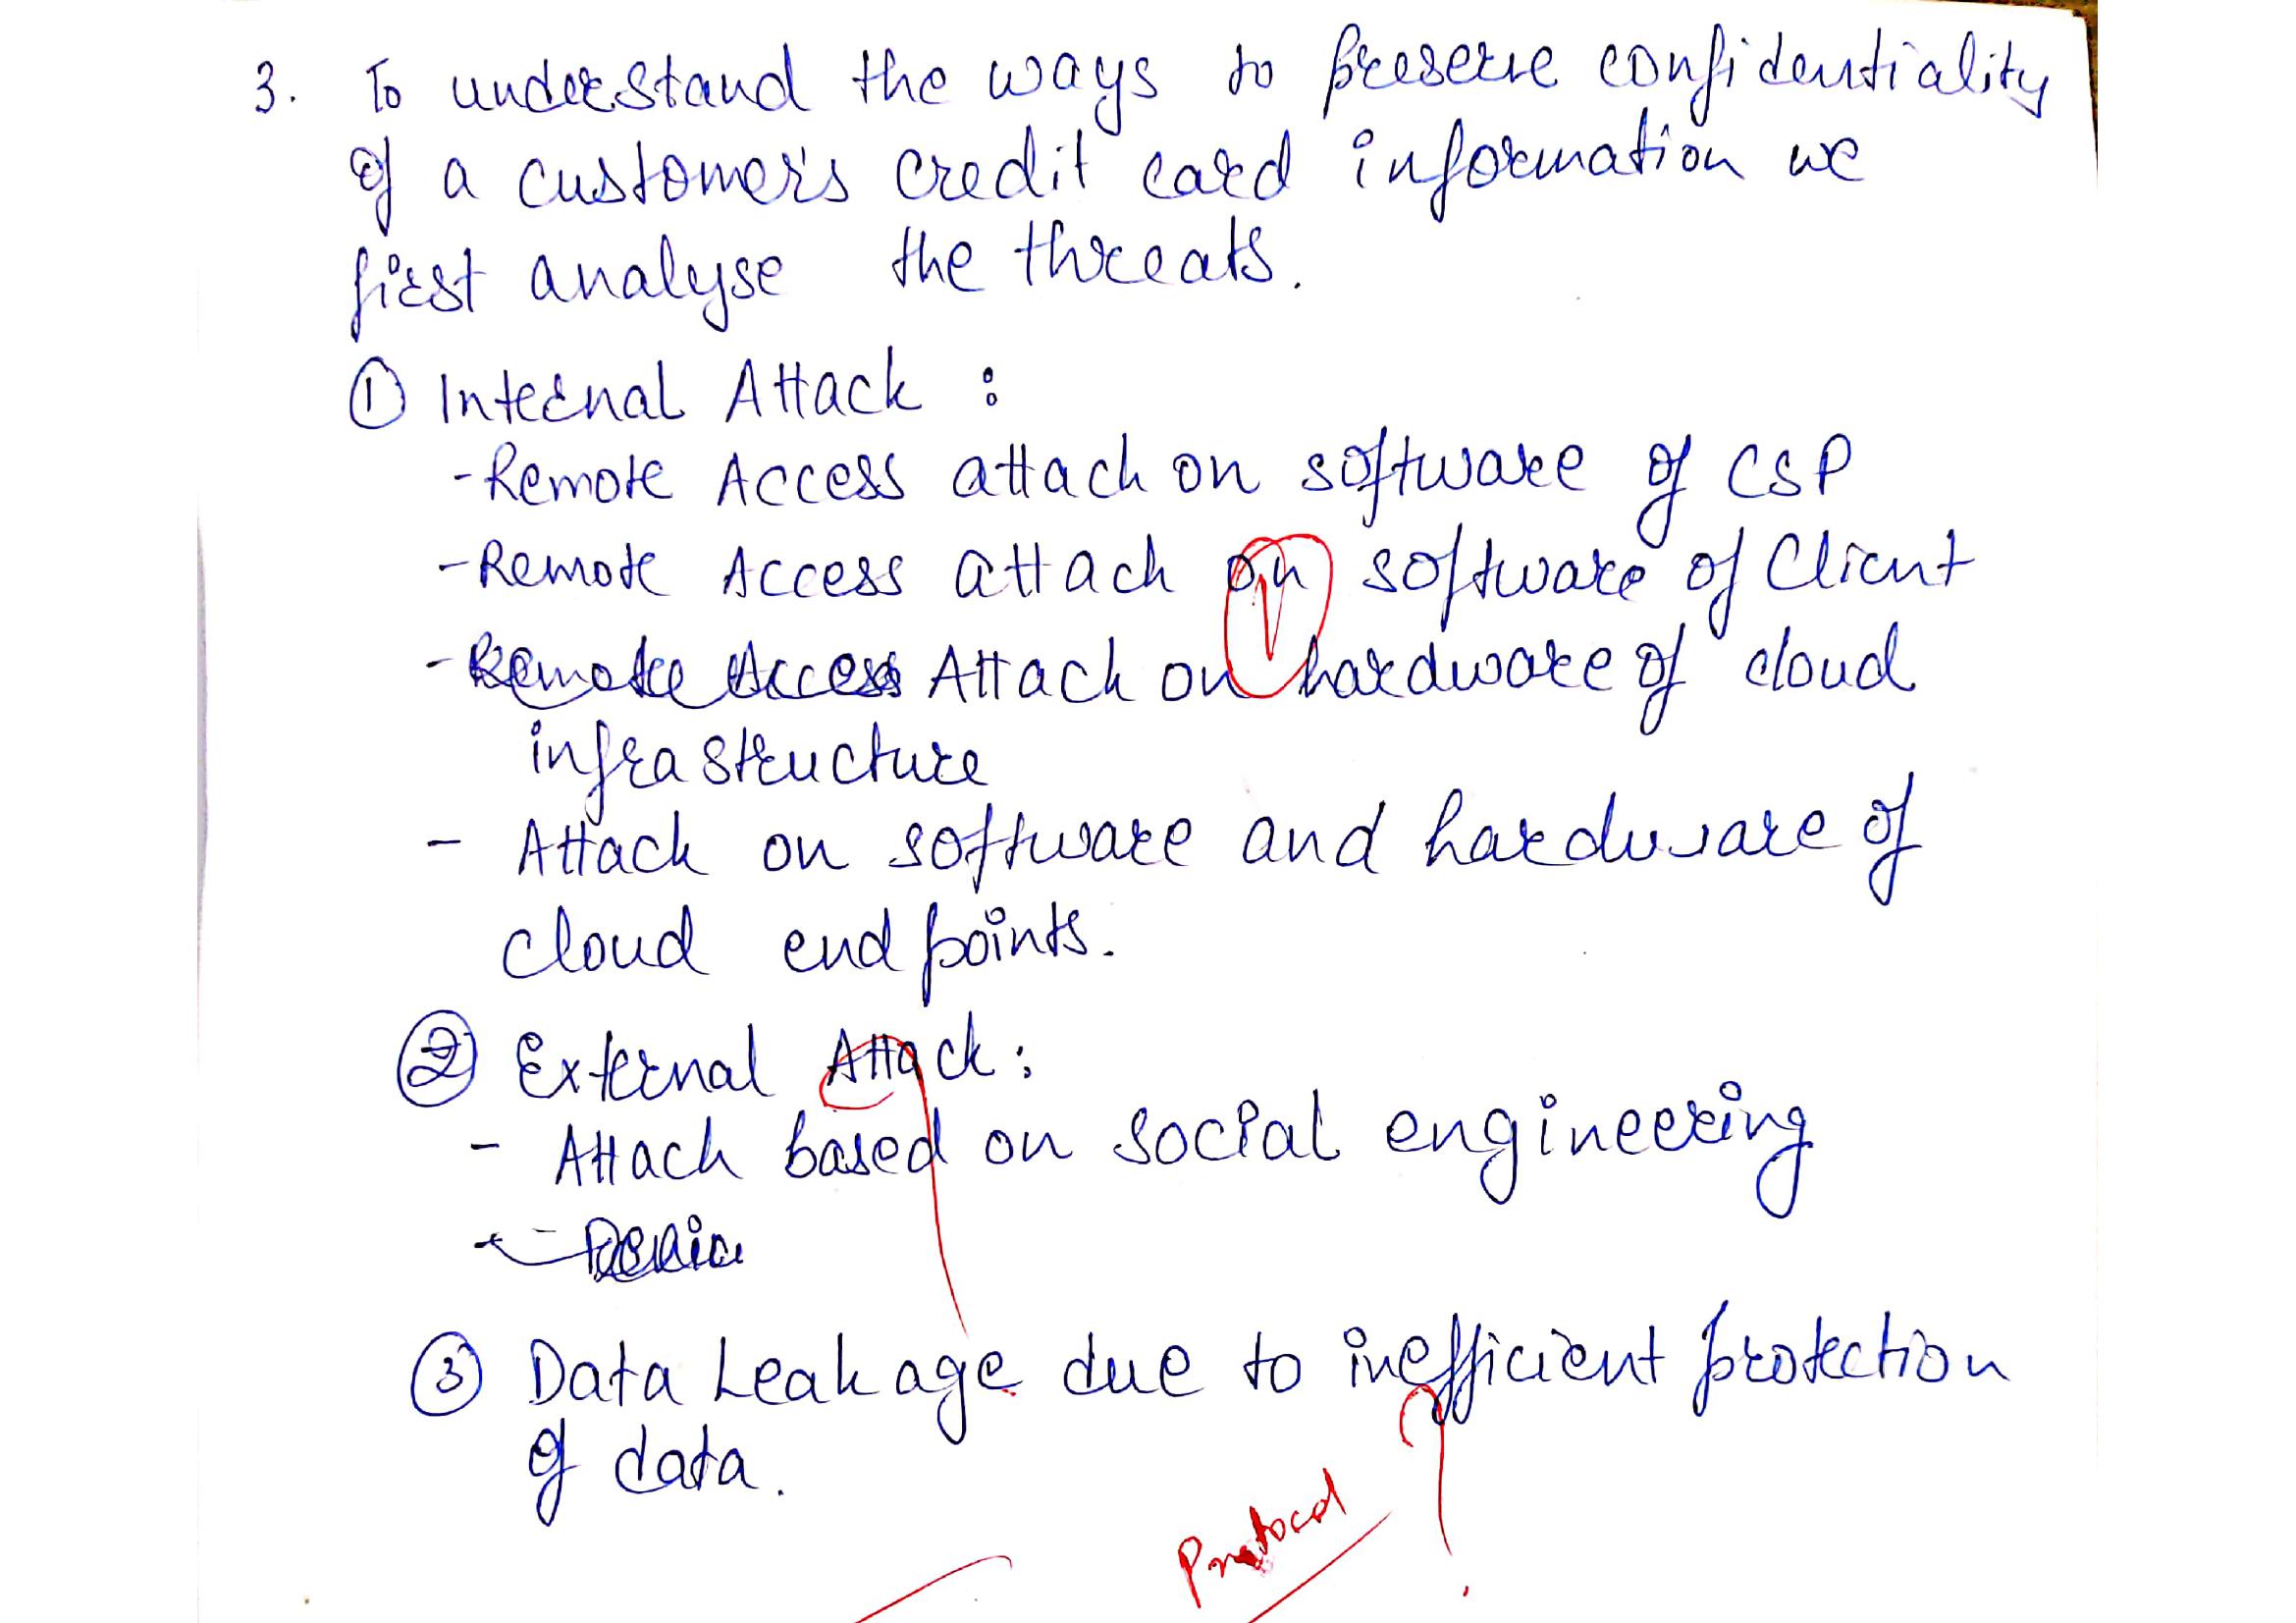 3. To understand the ways to preserve confidentiality
of a customer's credit card information we
first analyse the threats.
① Internal Attack :
- Remote Access attack on software of CSP
- Remote Access attack on software of Client
- Remote Access Attack on hardware of cloud
infrastructure
- Attack on software and hardware of
cloud end points.
② External Attack :
- Attack based on social engineering
③ Data Leakage due to inefficient protection
of data.
Protocol